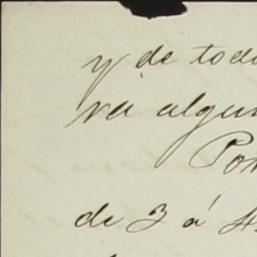 y de tod
va algun
Po
de 3 á 4